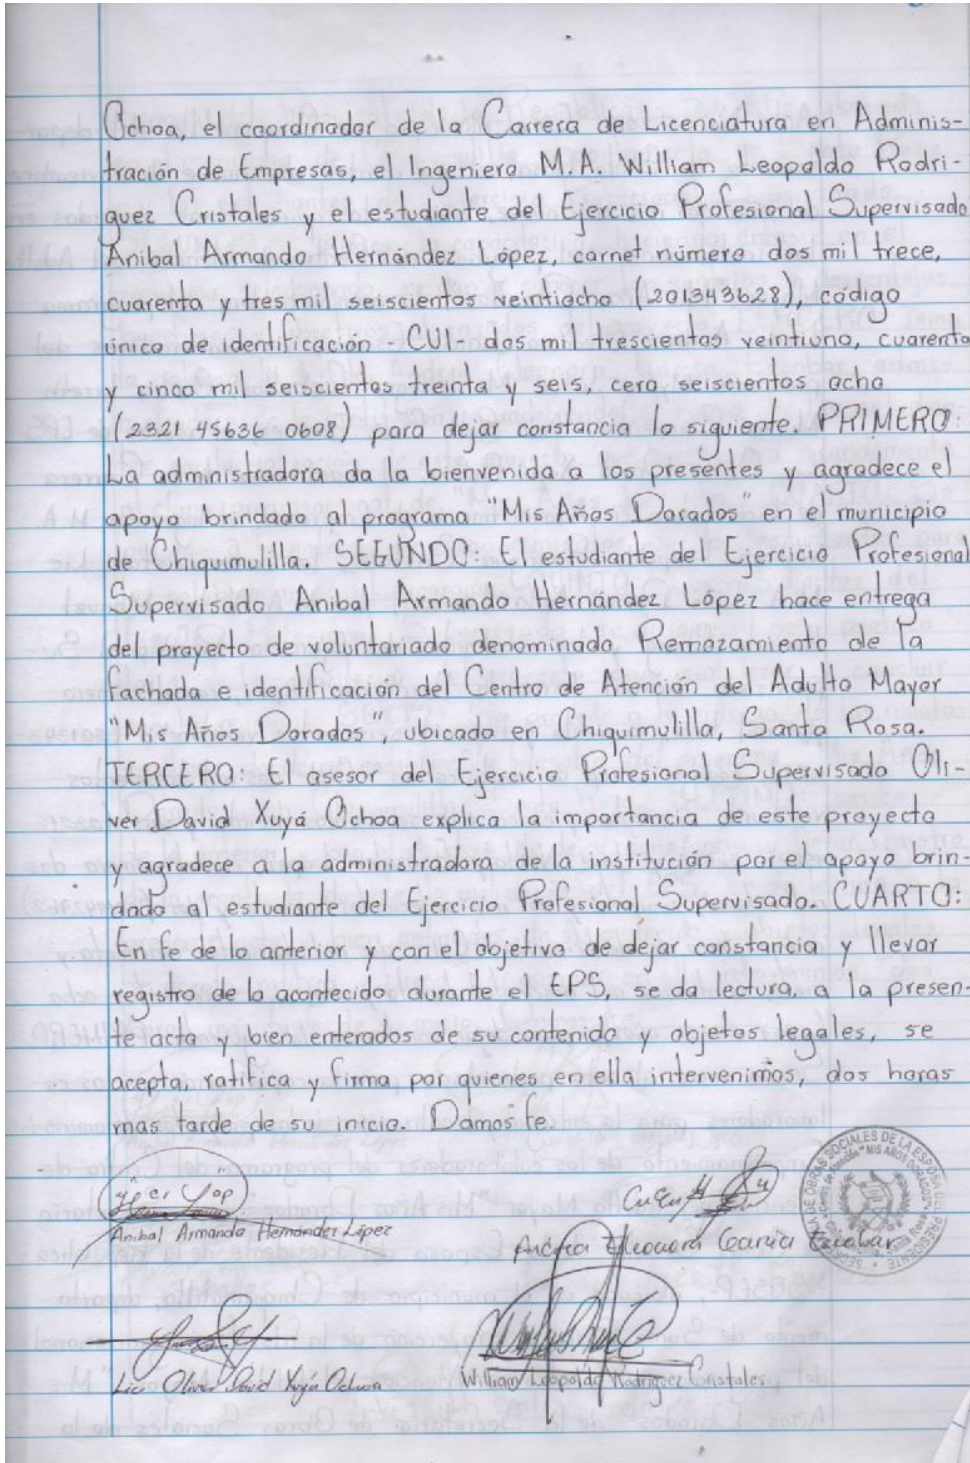 Ochoa, el coordinador de la Carrera de Licenciatura en Adminis-
tración de Empresas, el Ingeniero M.A. William Leopoldo Rodri-
guez Cristales y el estudiante del Ejercicio Profesional Supervisado
Anibal Armando Hernández López, carnet número dos mil trece,
cuarenta y tres mil seiscientos veintiocho (201343628), código
único de identificación - CUI- dos mil trescientos veintiuno, cuarenta
y cinco mil seiscientos treinta y seis, cero seiscientos ocho
(2321 45636 0608) para dejar constancia lo siguiente. PRIMERO:
La administradora da la bienvenida a los presentes y agradece el
apoyo brindado al programa "Mis Años Dorados" en el municipio
de Chiquimulilla. SEGUNDO: El estudiante del Ejercicio Profesional
Supervisado Anibal Armando Hernández López hace entrega
del proyecto de voluntariado denominado Remozamiento de la
fachada e identificación del Centro de Atención del Adulto Mayor
"Mis Años Dorados", ubicado en Chiquimulilla, Santa Rosa.
TERCERO: El asesor del Ejercicio Profesional Supervisado Oli-
ver David Xuyá Ochoa explica la importancia de este proyecto
y agradece a la administradora de la institución por el apoyo brin-
dado al estudiante del Ejercicio Profesional Supervisado. CUARTO:
En fe de lo anterior y con el objetivo de dejar constancia y llevar
registro de lo acontecido durante el EPS, se da lectura, a la presen-
te acta y bien enterados de su contenido y objetos legales, se
acepta, ratifica y firma por quienes en ella intervenimos, dos horas
mas tarde de su inicio. Damos fe.
Anibal Armando Hernández López
Andrea Eleonora García Escobar
Lic Oliver David Xuyá Ochoa
William Leopoldo Rodriguez Cristales
OBRAS SOCIALES DE LA ESPOSA DEL PRESIDENTE
"MIS AÑOS DORADOS"